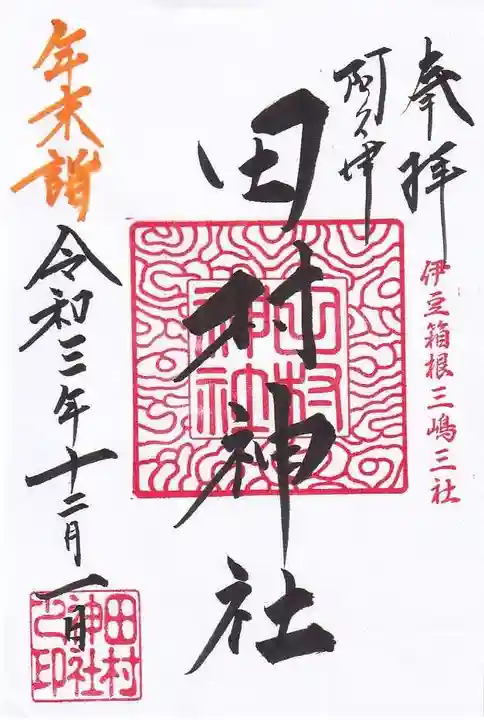 奉拝
伊豆箱根三嶋三社
阿久津
田村神社
田村神社
年末詣
令和三年十二月一日
田村
神社
之印